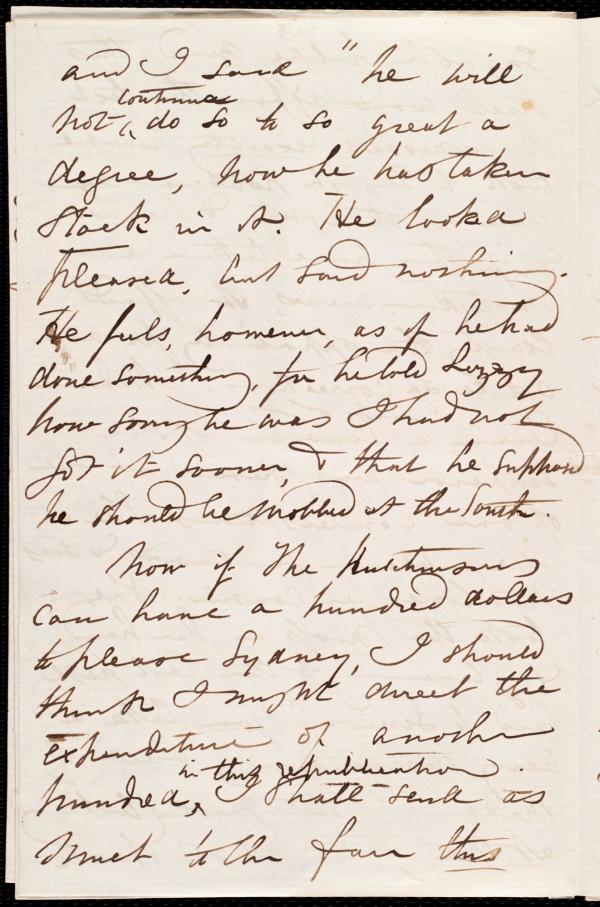 and I said "he will
not continue do so to so great a
degree, now he has taken
stock in it. He looked
pleased, but said nothing.
He feels, however, as if he had
done something, for he told Lizzy
how sorry he was I had not
got it sooner, & that he supposed
he should be mobbed at the South.
Now if the Hutchinsons
can have a hundred dollars
to please Sydney, I should
think I might direct the
expenditure of another
hundred, in this republication.
I shall send as
much to the fair this